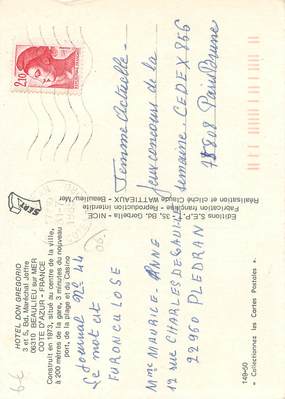 HOTEL DON GREGORIO
3 et 5, Bd. Maréchal Joffre
06310 BEAULIEU sur MER
COTE D'AZUR - FRANCE
Construit en 1973, situé au centre de la ville,
à 200 mètres de la gare, 3 minutes du nouveau
port, de la plage et du Casino
Journal N° 44
Le mot est
FURONCULOSE
Mme MAURICE-ANNE
12 RUE CHARLES DE GAULLE
22960 PLEDRAN
Editions S.E.P. - 35, Bd. Gorbella - NICE
Fabrication française - Reproduction interdite
Réalisation et cliché Claude WATTIEAUX - Beaulieu/Mer
SEPT
2,10
Femme Actuelle -
Jeu concours de la
semaine - CEDEX 866
75808 Paris Brune
149-50
« Collectionnez les Cartes Postales »